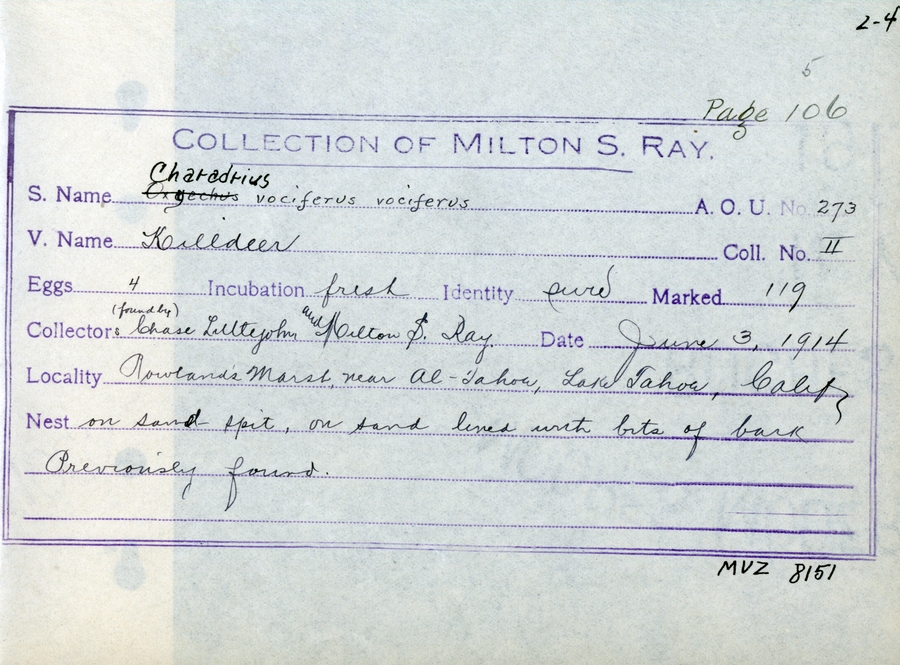 2-4
5
Page 106
COLLECTION OF MILTON S. RAY.
Charadrius
S. Name Oxyechus vociferus vociferus A. O. U. No. 273
V. Name Killdeer Coll. No. II
Eggs 4 Incubation fresh Identity sure Marked 119
(found by)
Collectors Chase Littlejohn and Milton S. Ray. Date June 3, 1914
Locality Rowlands Marsh, near Al-Tahoe, Lake Tahoe, Calif
Nest on sand spit, on sand lined with bits of bark
Previously found.
MVZ 8151